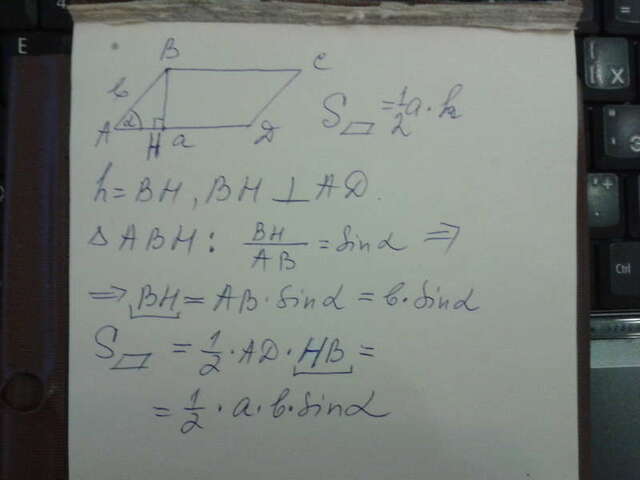 B C
b
A α H a D
S▱ = 1/2 a · h
h = BH, BH ⊥ AD.
Δ ABH: BH/AB = sinα ⇒
⇒ BH = AB · sinα = b · sinα
S▱ = 1/2 · AD · HB =
= 1/2 · a · b · sinα
E
X
Ctrl